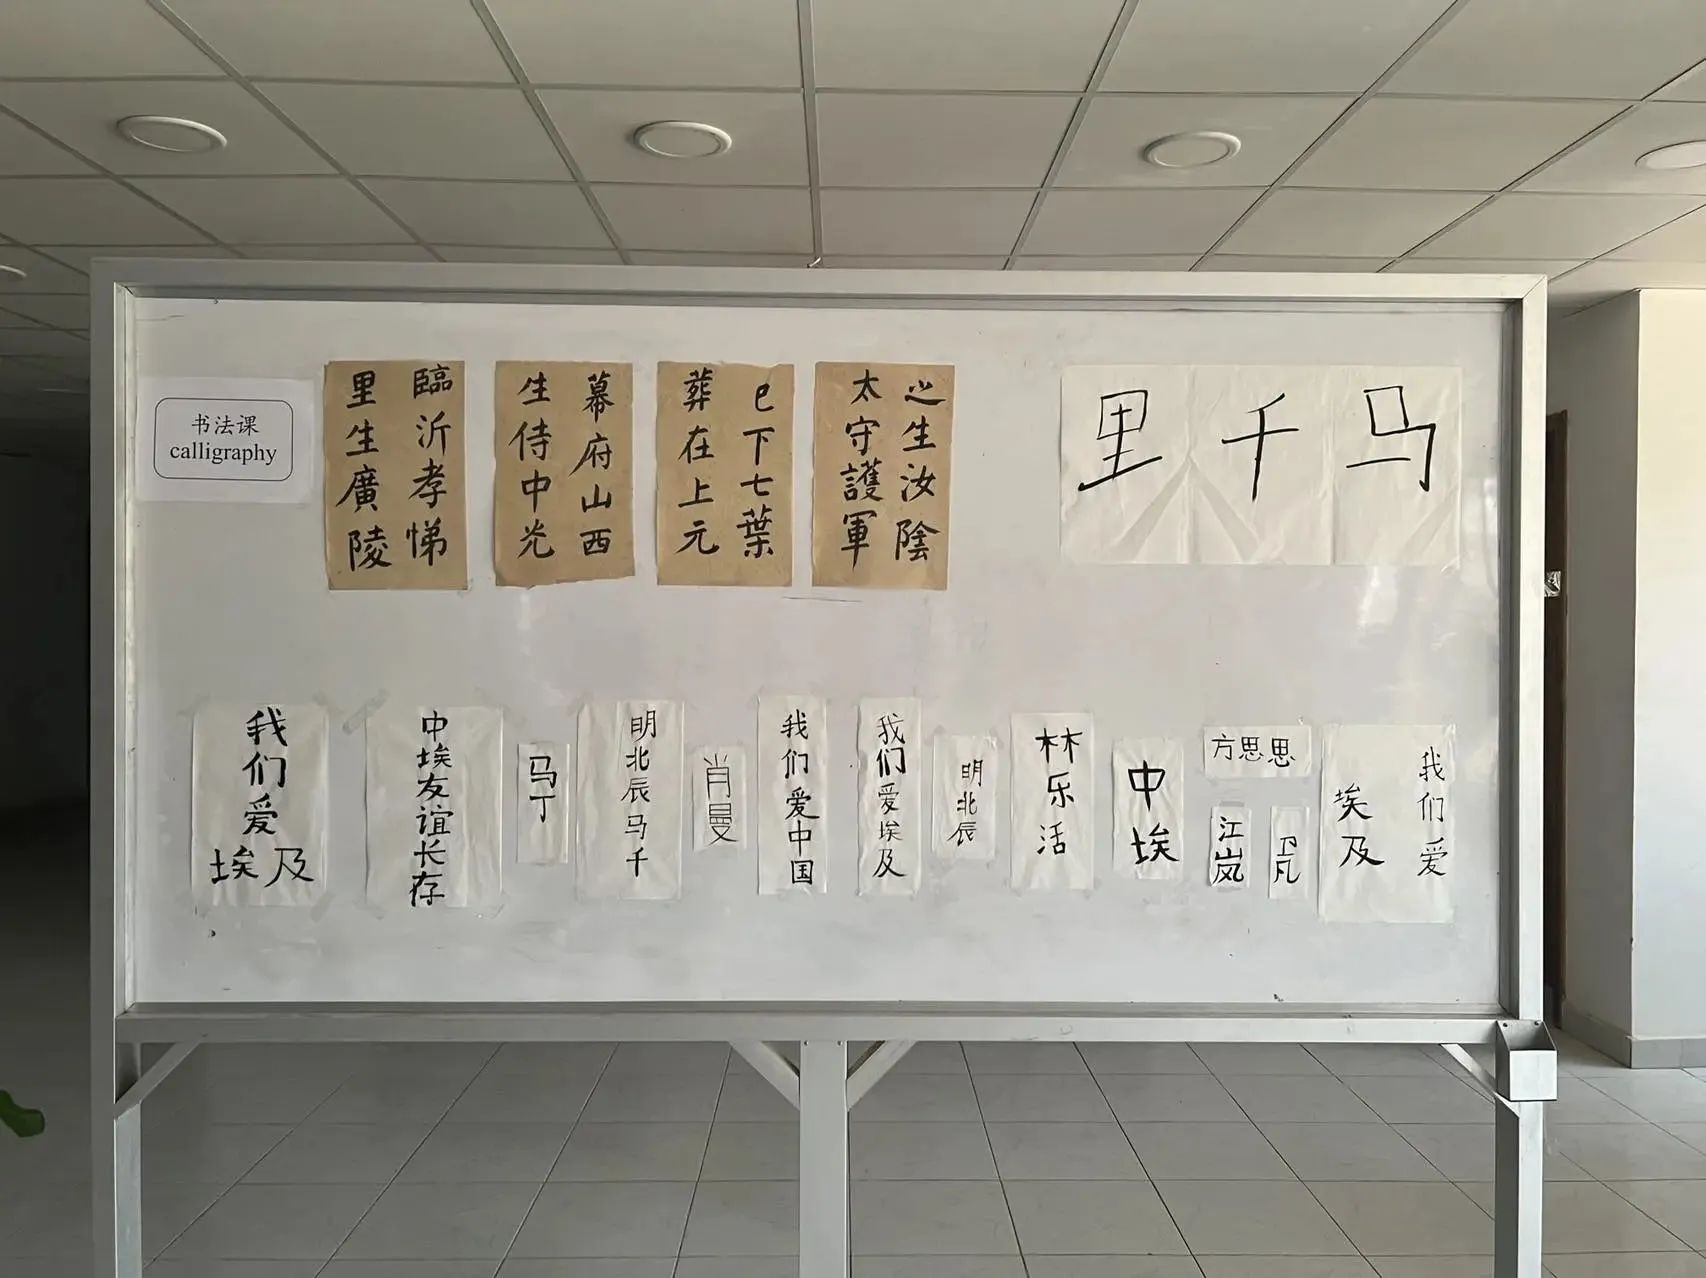 书法课
calligraphy
臨沂孝悌
里生廣陵
幕府山西
生侍中光
已下七葉
葬在上元
之生汝陰
太守護軍
马千里
我们爱
埃及
中埃友谊长存
马丁
明北辰马千
肖曼
我们爱中国
我们爱埃及
明北辰
林乐活
中埃
方思思
江岚
卫凡
我们爱
埃及